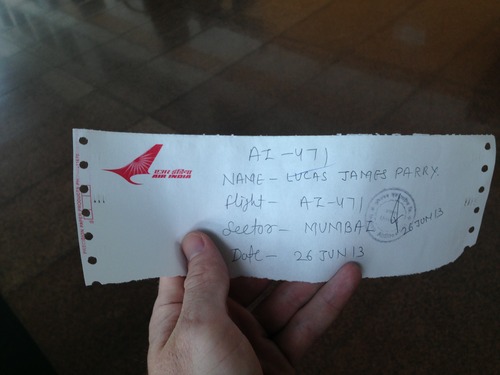 एअर इंडिया
AIR INDIA
AI-471
NAME- LUCAS JAMES PARRY
flight- AI-471
Sector- MUMBAI
26 JUN 13
Date- 26 JUN 13